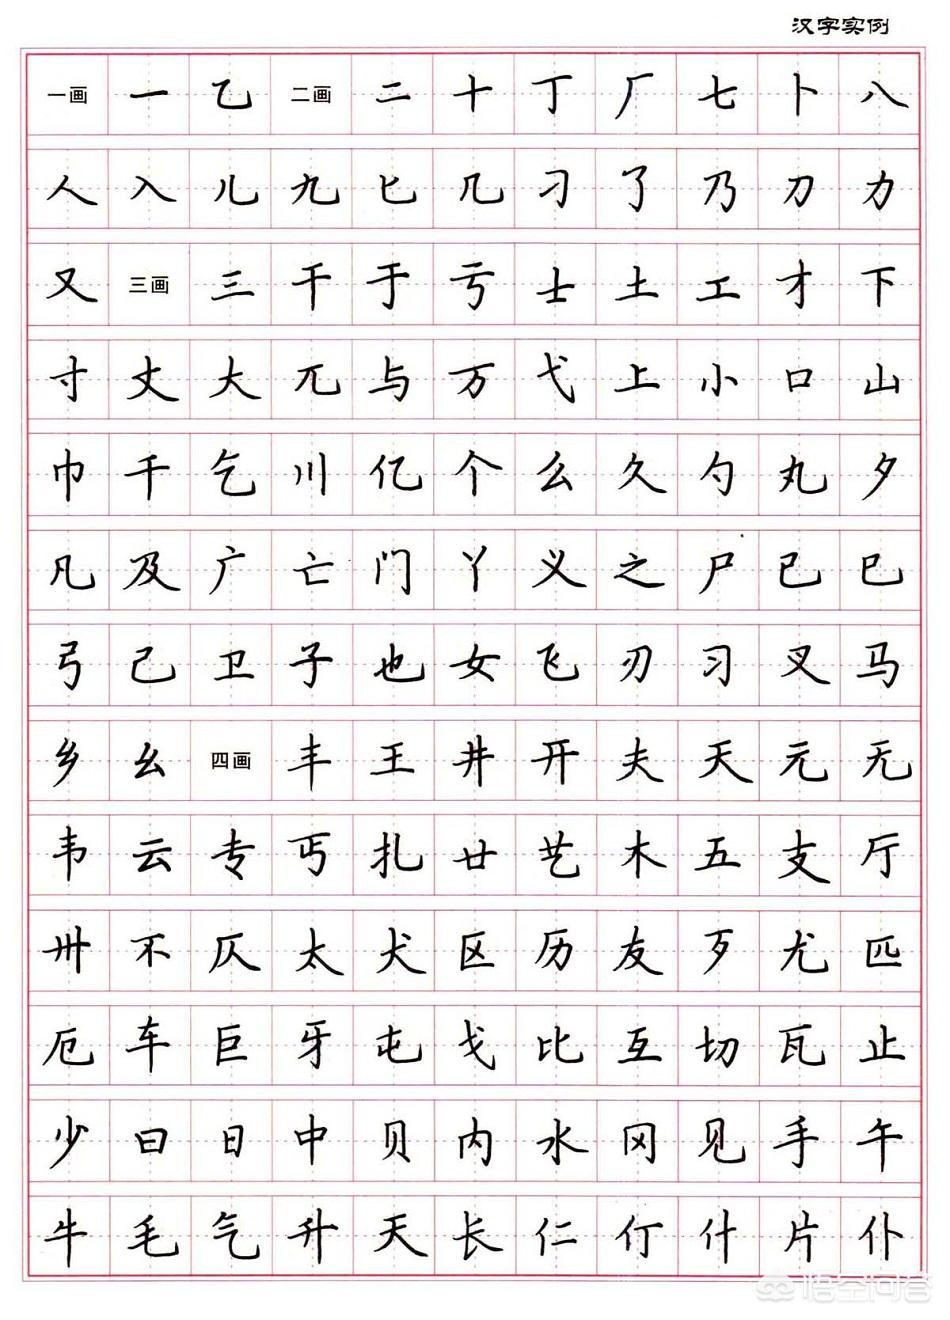 汉字实例
一画 一 乙 二画 二 十 丁 厂 七 卜 八
人 入 儿 九 匕 几 刁 了 乃 刀 力
又 三画 三 干 于 亏 士 土 工 才 下
寸 丈 大 兀 与 万 弋 上 小 口 山
巾 千 乞 川 亿 个 么 久 勺 丸 夕
凡 及 广 亡 门 丫 义 之 尸 已 巳
弓 己 卫 子 也 女 飞 刃 习 叉 马
乡 幺 四画 丰 王 井 开 夫 天 元 无
韦 云 专 丐 扎 廿 艺 木 五 支 厅
卅 不 仄 太 犬 区 历 友 歹 尤 匹
厄 车 巨 牙 屯 戈 比 互 切 瓦 止
少 曰 日 中 贝 内 水 冈 见 手 午
牛 毛 气 升 夭 长 仁 仃 什 片 仆
悟空问答